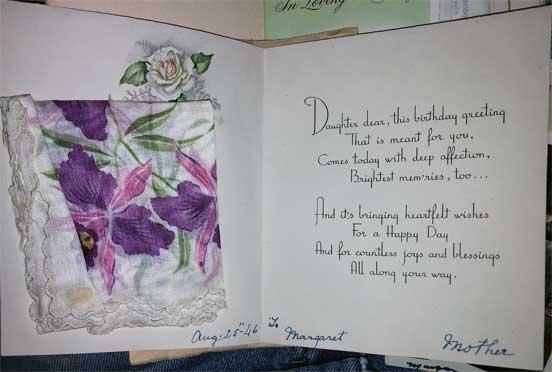 In Loving
Daughter dear, this birthday greeting
That is meant for you,
Comes today with deep affection,
Brightest mem'ries, too...
And it's bringing heartfelt wishes
For a Happy Day
And for countless joys and blessings
All along your way.
Aug-25"-46 "To Margaret
Mother